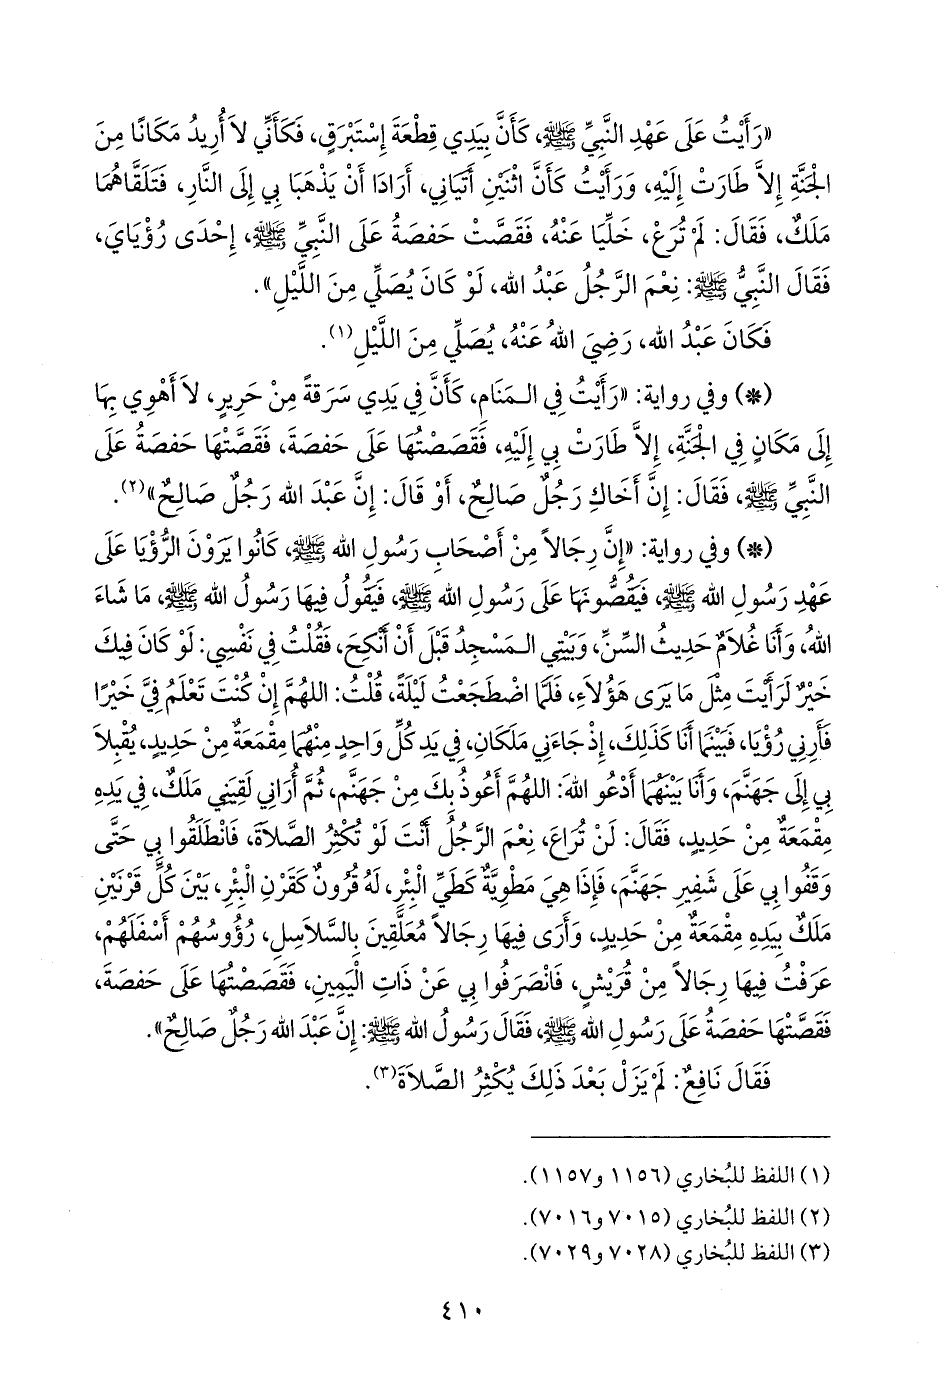 «رَأَيْتُ عَلَى عَهْدِ النَّبِيِّ ﷺ، كَأَنَّ بِيَدِي قِطْعَةَ إِسْتَبْرَقٍ، فَكَأَنِّي لاَ أُرِيدُ مَكَانًا مِنَ
الجَنَّةِ إِلاَّ طَارَتْ إِلَيْهِ، وَرَأَيْتُ كَأَنَّ اثْنَيْنِ أَتَيَانِي، أَرَادَا أَنْ يَذْهَبَا بِي إِلَى النَّارِ، فَتَلَقَّاهُمَا
مَلَكٌ، فَقَالَ: لَمْ تُرَعْ، خَلِّيَا عَنْهُ، فَقَصَّتْ حَفصَةُ عَلَى النَّبِيِّ ﷺ، إِحْدَى رُؤْيَايَ،
فَقَالَ النَّبِيُّ ﷺ: نِعْمَ الرَّجُلُ عَبْدُ الله، لَوْ كَانَ يُصَلِّي مِنَ اللَّيْلِ».
فَكَانَ عَبْدُ الله، رَضِيَ اللهُ عَنْهُ، يُصَلِّي مِنَ اللَّيْلِ(١).
(*) وفي رواية: «رَأَيْتُ فِي الـمَنَامِ، كَأَنَّ فِي يَدِي سَرَقَةً مِنْ حَرِيرٍ، لاَ أَهْوِي بِهَا
إِلَى مَكَانٍ فِي الجَنَّةِ، إِلاَّ طَارَتْ بِي إِلَيْهِ، فَقَصَصْتُهَا عَلَى حَفصَةَ، فَقَصَّتْهَا حَفصَةُ عَلَى
النَّبِيِّ ﷺ، فَقَالَ: إِنَّ أَخَاكِ رَجُلٌ صَالِحٌ، أَوْ قَالَ: إِنَّ عَبْدَ الله رَجُلٌ صَالِحٌ»(٢).
(*) وفي رواية: «إِنَّ رِجَالاً مِنْ أَصْحَابِ رَسُولِ الله ﷺ، كَانُوا يَرَوْنَ الرُّؤْيَا عَلَى
عَهْدِ رَسُولِ الله ﷺ، فَيَقُصُّونَهَا عَلَى رَسُولِ الله ﷺ، فَيَقُولُ فِيهَا رَسُولُ الله ﷺ، مَا شَاءَ
اللهُ، وَأَنَا غُلاَمٌ حَدِيثُ السِّنِّ، وَبَيْتِي الـمَسْجِدُ قَبْلَ أَنْ أَنْكِحَ، فَقُلْتُ فِي نَفْسِي: لَوْ كَانَ فِيكَ
خَيْرٌ لَرَأَيْتَ مِثْلَ مَا يَرَى هَؤُلاَءِ، فَلَمَّا اضْطَجَعْتُ لَيْلَةً، قُلْتُ: اللهُمَّ إِنْ كُنْتَ تَعْلَمُ فِيَّ خَيْرًا
فَأَرِنِي رُؤْيَا، فَبَيْنَمَا أَنَا كَذَلِكَ، إِذْ جَاءَنِي مَلَكَانِ، فِي يَدِ كُلِّ وَاحِدٍ مِنْهُمَا مِقْمَعَةٌ مِنْ حَدِيدٍ، يُقْبِلاَ
بِي إِلَى جَهَنَّمَ، وَأَنَا بَيْنَهُمَا أَدْعُو اللهَ: اللهُمَّ أَعُوذُ بِكَ مِنْ جَهَنَّمَ، ثُمَّ أُرَانِي لَقِيَنِي مَلَكٌ، فِي يَدِهِ
مِقْمَعَةٌ مِنْ حَدِيدٍ، فَقَالَ: لَنْ تُرَاعَ، نِعْمَ الرَّجُلُ أَنْتَ لَوْ تُكْثِرُ الصَّلاَةَ، فَانْطَلَقُوا بِي حَتَّى
وَقَفُوا بِي عَلَى شَفِيرِ جَهَنَّمَ، فَإِذَا هِيَ مَطْوِيَّةٌ كَطَيِّ الْبِئْرِ، لَهُ قُرُونٌ كَقَرْنِ الْبِئْرِ، بَيْنَ كُلِّ قَرْنَيْنِ
مَلَكٌ بِيَدِهِ مِقْمَعَةٌ مِنْ حَدِيدٍ، وَأَرَى فِيهَا رِجَالاً مُعَلَّقِينَ بِالسَّلاَسِلِ، رُؤُوسُهُمْ أَسْفَلَهُمْ،
عَرَفْتُ فِيهَا رِجَالاً مِنْ قُرَيْشٍ، فَانْصَرَفُوا بِي عَنْ ذَاتِ الْيَمِينِ، فَقَصَصْتُهَا عَلَى حَفصَةَ،
فَقَصَّتْهَا حَفصَةُ عَلَى رَسُولِ الله ﷺ، فَقَالَ رَسُولُ الله ﷺ: إِنَّ عَبْدَ الله رَجُلٌ صَالِحٌ».
فَقَالَ نَافِعٌ: لَمْ يَزَلْ بَعْدَ ذَلِكَ يُكْثِرُ الصَّلاَةَ(٣).
(١) اللفظ للبُخاري (١١٥٦ و١١٥٧).
(٢) اللفظ للبُخاري (٧٠١٥ و٧٠١٦).
(٣) اللفظ للبُخاري (٧٠٢٨ و٧٠٢٩).
٤١٠